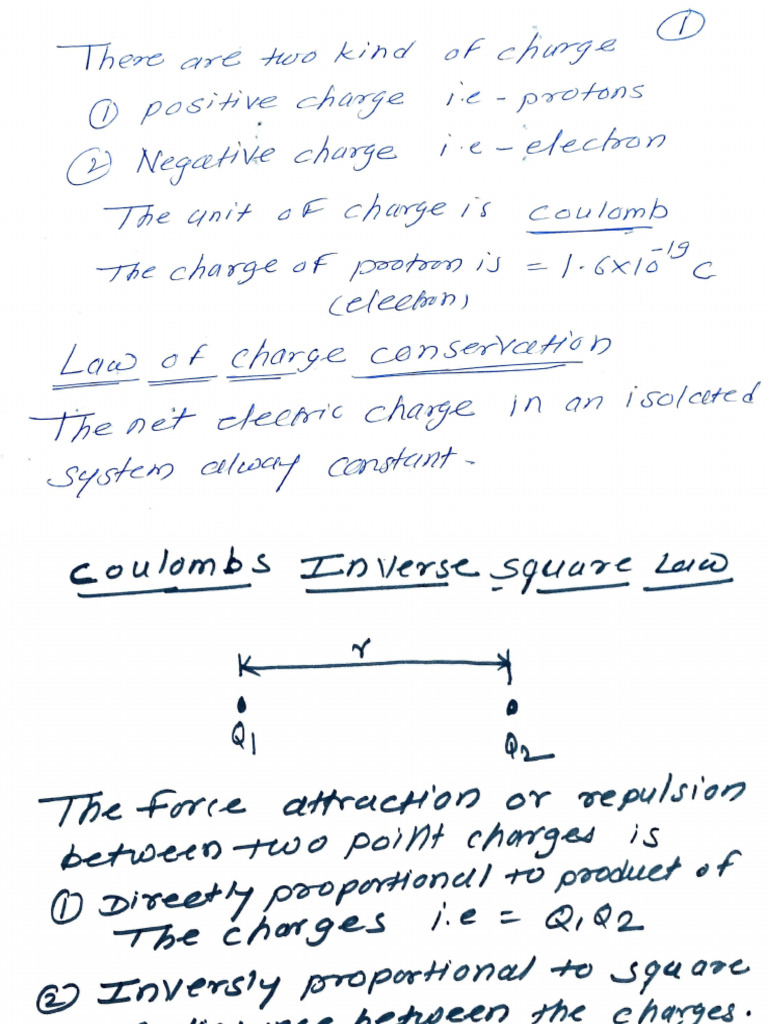 ①
There are two kind of charge
① positive charge i.e - protons
② Negative charge i.e - electron
The unit of charge is coulomb
The charge of protron is = 1.6x10⁻¹⁹ C
(electron)
Law of charge conservation
The net electric charge in an isolated
system alway constant.
Coulombs Inverse square Law
r
Q1 Q2
The force attraction or repulsion
between two point charges is
① Directly proportional to product of
The charges i.e = Q1Q2
② Inversly proportional to square
between the charges.